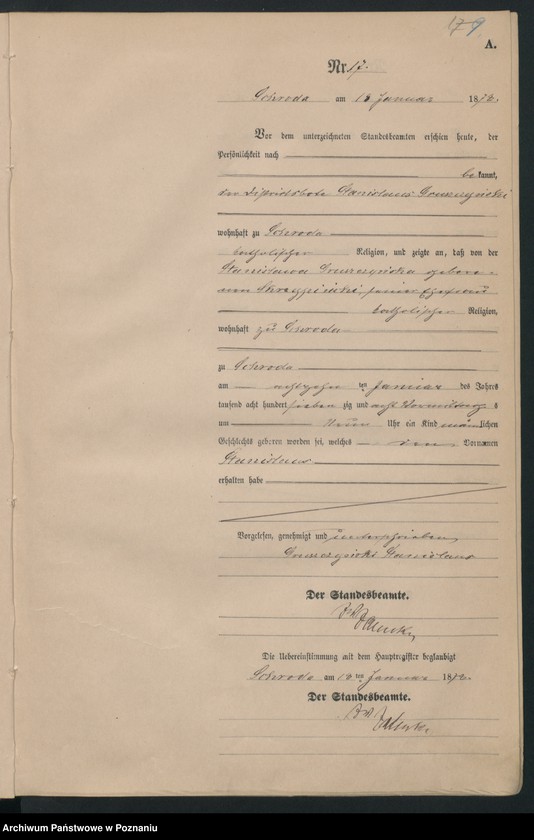 17 9
A.
Nr. 17.
Schroda am 18 Januar 1878.
Vor dem unterzeichneten Standesbeamten erschien heute, der
Persönlichkeit nach
bekannt,
der Stanislaus
wohnhaft zu Schroda
katholischer Religion, und zeigte an, daß von der
Stanislawa geborenen
seiner Ehefrau
katholischer Religion,
wohnhaft zu Schroda
zu Schroda
am achtzehn ten Januar des Jahres
tausend acht hundert sieben zig und acht Vormittags
um Neun Uhr ein Kind männlichen
Geschlechts geboren worden sei, welches den Vornamen
Stanislaus
erhalten habe
Vorgelesen, genehmigt und unterschrieben
Stanislaus
Der Standesbeamte.
Die Uebereinstimmung mit dem Hauptregister beglaubigt
Schroda am 18 ten Januar 1878.
Der Standesbeamte.
Archiwum Państwowe w Poznaniu